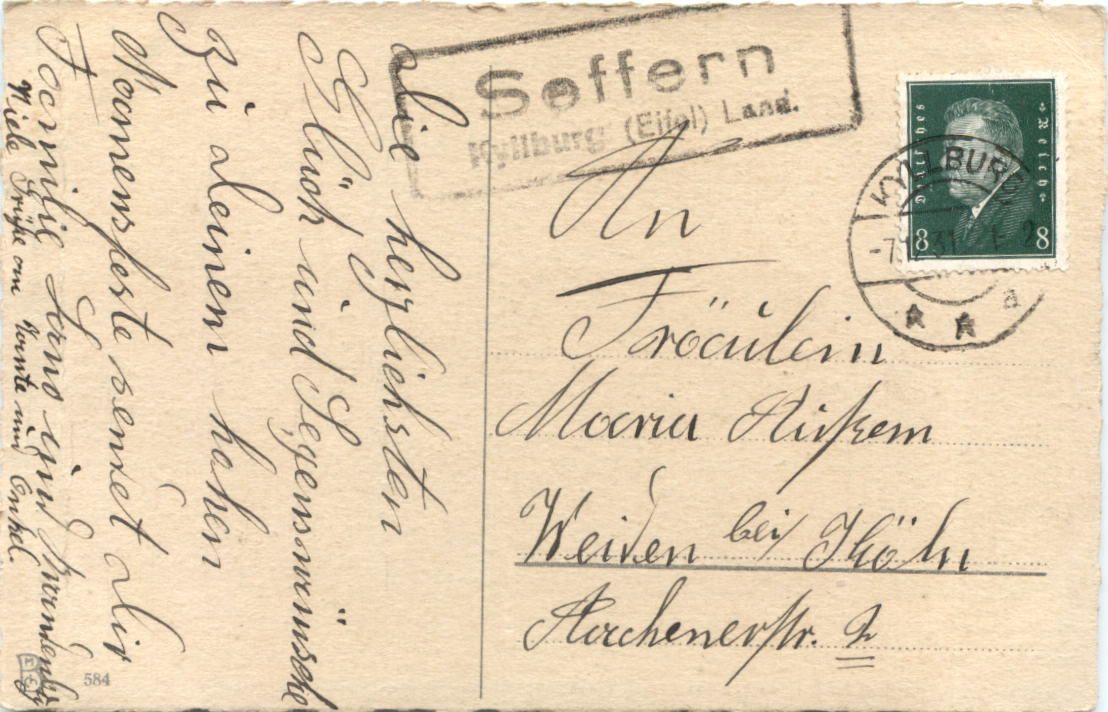 Die herzlichsten
Glück und Segenswünsche
zu deinem hohen
Namensfeste sendet Dir
Familie
Viele Grüße an Tante und Onkel.
584
Seffern
Kyllburg (Eifel) Land.
Deutsches Reich
8 8
KYLLBURG
-7. 31
a
An
Fräulein
Maria
Weiden bei Köln
Aachenerstr. 2